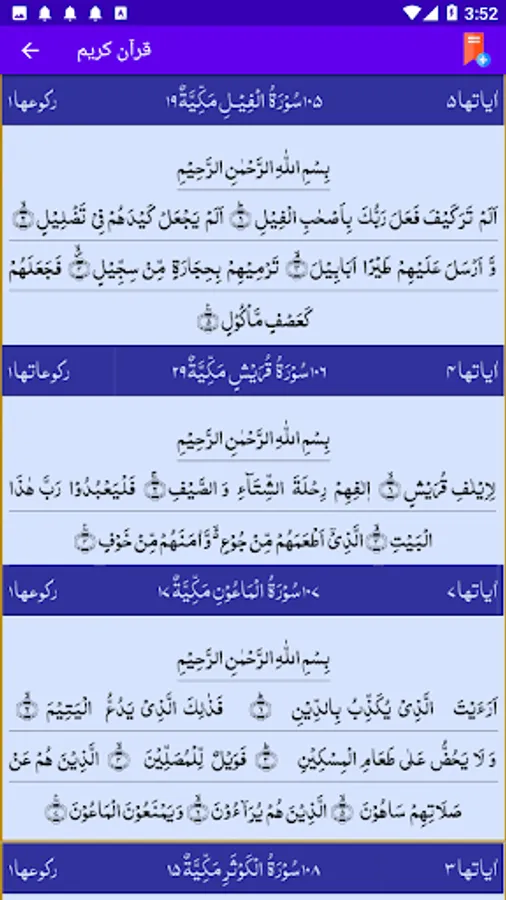 3:52
قرآن کریم
اٰیاتها۵ ۱۰۵سُوْرَةُ الْفِيْلِ مَكِّيَّةٌ۱۹ رکوعها۱
بِسْمِ اللهِ الرَّحْمٰنِ الرَّحِيْمِ
اَلَمْ تَرَكَيْفَ فَعَلَ رَبُّكَ بِاَصْحٰبِ الْفِيْلِ ۝۱ اَلَمْ يَجْعَلْ كَيْدَهُمْ فِيْ تَضْلِيْلٍ ۝۲
وَّ اَرْسَلَ عَلَيْهِمْ طَيْرًا اَبَابِيْلَ ۝۳ تَرْمِيْهِمْ بِحِجَارَةٍ مِّنْ سِجِّيْلٍ ۝۴ فَجَعَلَهُمْ
كَعَصْفٍ مَّاْكُوْلٍ ۝۵
اٰیاتها۴ ۱۰۶سُوْرَةُ قُرَيْشٍ مَكِّيَّةٌ۲۹ رکوعاتها۱
بِسْمِ اللهِ الرَّحْمٰنِ الرَّحِيْمِ
لِاِيْلٰفِ قُرَيْشٍ ۝۱ اٖلٰفِهِمْ رِحْلَةَ الشِّتَآءِ وَ الصَّيْفِ ۝۲ فَلْيَعْبُدُوْا رَبَّ هٰذَا
الْبَيْتِ ۝۳ الَّذِيْۤ اَطْعَمَهُمْ مِّنْ جُوْعٍ ۙ وَّ اٰمَنَهُمْ مِّنْ خَوْفٍ ۝۴
اٰیاتها۷ ۱۰۷سُوْرَةُ الْمَاعُوْنِ مَكِّيَّةٌ۱۷ رکوعها۱
بِسْمِ اللهِ الرَّحْمٰنِ الرَّحِيْمِ
اَرَءَيْتَ الَّذِيْ يُكَذِّبُ بِالدِّيْنِ ۝۱ فَذٰلِكَ الَّذِيْ يَدُعُّ الْيَتِيْمَ ۝۲
وَ لَا يَحُضُّ عَلٰى طَعَامِ الْمِسْكِيْنِ ۝۳ فَوَيْلٌ لِّلْمُصَلِّيْنَ ۝۴ الَّذِيْنَ هُمْ عَنْ
صَلَاتِهِمْ سَاهُوْنَ ۝۵ الَّذِيْنَ هُمْ يُرَآءُوْنَ ۝۶ وَيَمْنَعُوْنَ الْمَاعُوْنَ ۝۷
اٰیاتها۳ ۱۰۸سُوْرَةُ الْكَوْثَرِ مَكِّيَّةٌ۱۵ رکوعها۱